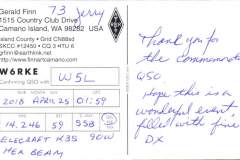 Gerald Finn
73 Jerry
1515 Country Club Drive
Camano Island, WA 98282 USA
Island County • Grid CN88sd
SKCC #12450 • CQ 3 HTU 6
gfinn@earthlink.net
http://www.finnartcamano.com
W6RKE
Confirming QSO with W5L
2018 APRIL 25 01:59
14.246 59 SSB
ELECRAFT K3S 90W
HEX BEAM
Thank you for
the commemorative
QSO
Hope this is a
wonderful event
filled with fine
DX